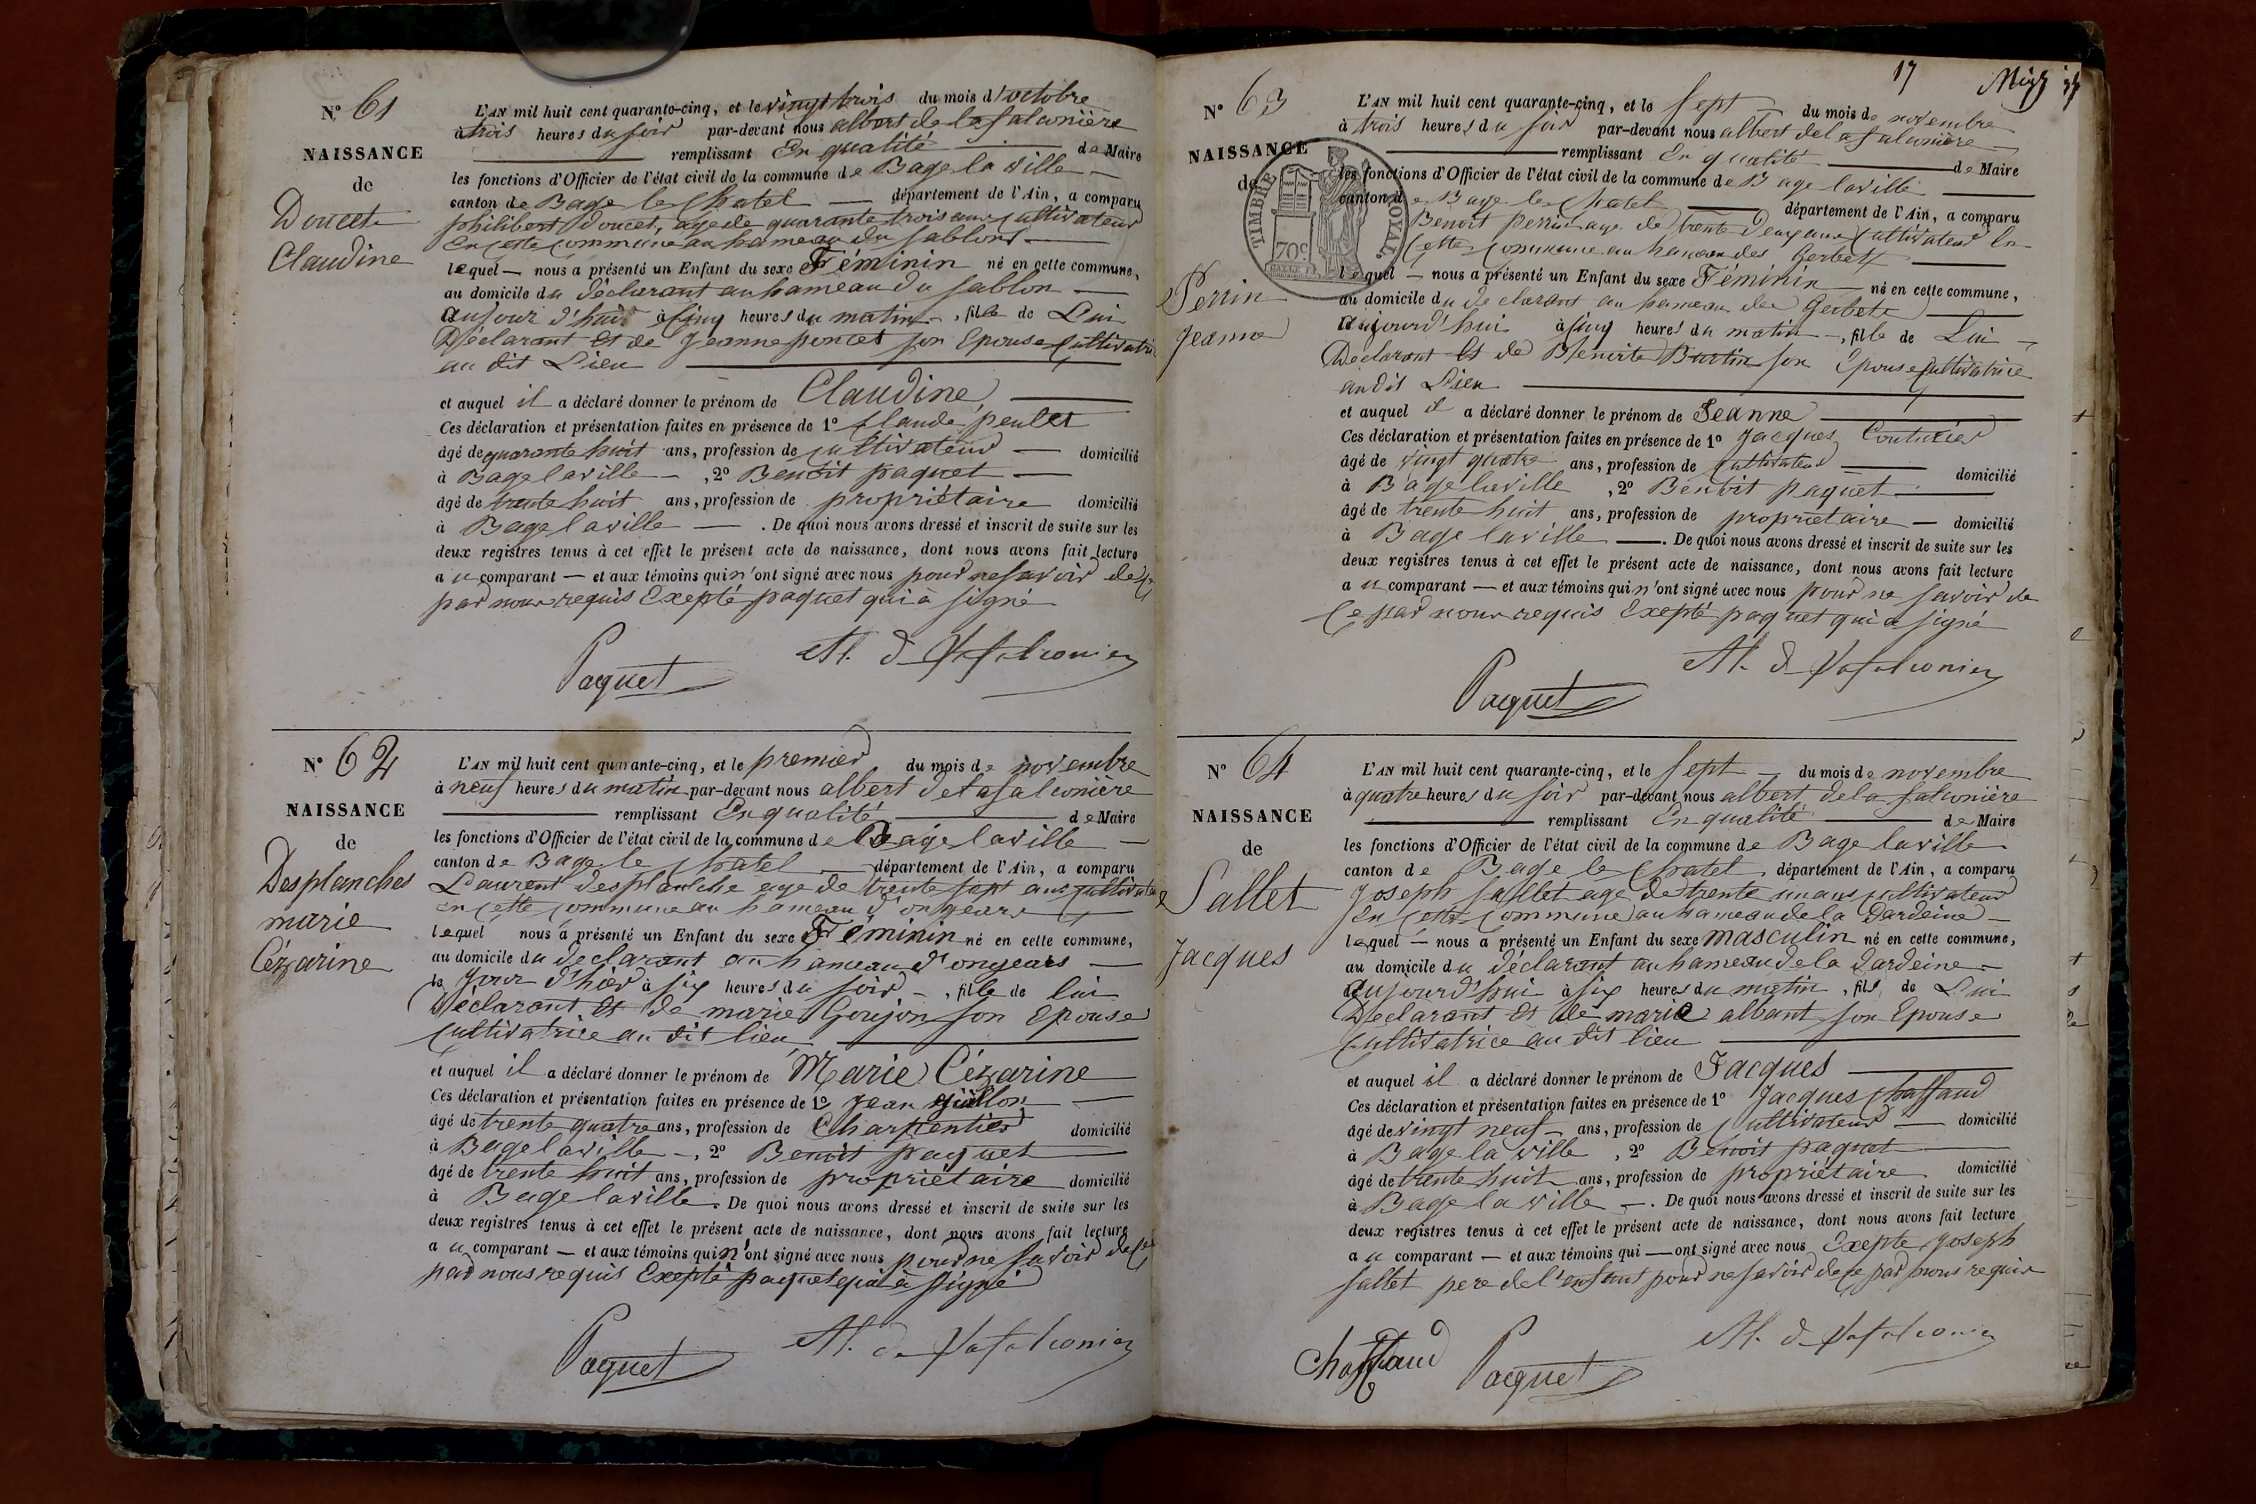 N° 61
NAISSANCE
de
Doucet
Claudine
L'AN mil huit cent quarante-cinq, et le vingt trois du mois d'octobre
à trois heures du soir par-devant nous albert de la falconière
remplissant En qualité de Maire
les fonctions d'Officier de l'état civil de la commune de Bage la ville
canton de Bage le Chatel département de l'Ain, a comparu
philibert Doucet, age de quarante trois ans Cultivateur
En cette Commune au hameau du Sablons
lequel nous a présenté un Enfant du sexe Féminin né en cette commune,
au domicile du déclarant au hameau du Sablon
aujour d'hui à Cinq heures du matin, fille de Lui
Déclarant Et de Jeanne poncet son Epouse Cultivatrice
au dit Lieu
et auquel il a déclaré donner le prénom de Claudine
Ces déclaration et présentation faites en présence de 1° Claude peulet
âgé de quarante huit ans, profession de cultivateur domicilié
à Bage laville, 2° Benoit paquet
âgé de trente huit ans, profession de propriétaire domicilié
à Bage laville. De quoi nous avons dressé et inscrit de suite sur les
deux registres tenus à cet effet le présent acte de naissance, dont nous avons fait lecture
a u comparant et aux témoins qui n'ont signé avec nous pour ne savoir de ce
par nous requis Exepté paquet qui à signé
Paquet Al. de Lafalconièr
N° 62
NAISSANCE
de
Desplanches
marie
Cézarine
L'AN mil huit cent quarante-cinq, et le premier du mois de novembre
à neuf heures du matin par-devant nous albert de la falconière
remplissant En qualité de Maire
les fonctions d'Officier de l'état civil de la commune de Bage laville
canton de Bage le Chatel département de l'Ain, a comparu
Laurent desplanche age de trente sept ans cultivateur
en cette commune au hameau d'ongears
lequel nous a présenté un Enfant du sexe Féminin né en cette commune,
au domicile du déclarant au hameau d'ongears
le Jour d'hier à six heures du soir, fille de lui
Déclarant Et de marie Goujon son Epouse
Cultivatrice au dit lieu
et auquel il a déclaré donner le prénom de Marie Cézarine
Ces déclaration et présentation faites en présence de 1° Jean
âgé de trente quatre ans, profession de Charpentier domicilié
à Bage laville, 2° Benoit paquet
âgé de trente huit ans, profession de propriétaire domicilié
à Bage laville. De quoi nous avons dressé et inscrit de suite sur les
deux registres tenus à cet effet le présent acte de naissance, dont nous avons fait lecture
a u comparant et aux témoins qui n'ont signé avec nous pour ne savoir de ce
par nous requis Exepté paquet qui à signé
Paquet Al. de Lafalconièr
17
N° 63
NAISSANCE
de
Perrin
Jeanne
TIMBRE ROYAL
70c
L'AN mil huit cent quarante-cinq, et le sept du mois de novembre
à trois heures du soir par-devant nous albert de la falconière
remplissant En qualité de Maire
les fonctions d'Officier de l'état civil de la commune de Bage laville
canton de Bage le Chatel département de l'Ain, a comparu
Benoit perrin age de trente Deux ans Cultivateur En
Cette Commune au hameau des Gerbets
lequel nous a présenté un Enfant du sexe Féminin né en cette commune,
au domicile du declarant au hameau des Gerbets
aujourd'hui à Cinq heures du matin, fille de Lui
Déclarant Et de Benoite Burtin son Epouse Cultivatrice
au dit Lieu
et auquel il a déclaré donner le prénom de Jeanne
Ces déclaration et présentation faites en présence de 1° Jacques Couturier
âgé de vingt quatre ans, profession de Cultivateur domicilié
à Bage laville, 2° Benoit paquet
âgé de trente huit ans, profession de propriétaire domicilié
à Bage laville. De quoi nous avons dressé et inscrit de suite sur les
deux registres tenus à cet effet le présent acte de naissance, dont nous avons fait lecture
a u comparant et aux témoins qui n'ont signé avec nous pour ne savoir de
Ce par nous requis Exepté paquet qui a signé
Paquet Al. de Lafalconièr
N° 64
NAISSANCE
de
Sallet
Jacques
L'AN mil huit cent quarante-cinq, et le sept du mois de novembre
à quatre heures du soir par-devant nous albert de la falconière
remplissant En qualité de Maire
les fonctions d'Officier de l'état civil de la commune de Bage laville
canton de Bage le Chatel département de l'Ain, a comparu
Joseph Sallet age de trente un ans cultivateur
En Cette Commune au hameau de la Dardeine
lequel nous a présenté un Enfant du sexe masculin né en cette commune,
au domicile du déclarant au hameau de la Dardeine
aujourd'hui à six heures du matin, fils de Lui
Déclarant Et de marie albant son Epouse
Cultivatrice au dit lieu
et auquel il a déclaré donner le prénom de Jacques
Ces déclaration et présentation faites en présence de 1° Jacques Chaffaud
âgé de vingt neuf ans, profession de Cultivateur domicilié
à Bage la ville, 2° Benoit paquet
âgé de trente huit ans, profession de propriétaire domicilié
à Bage la ville. De quoi nous avons dressé et inscrit de suite sur les
deux registres tenus à cet effet le présent acte de naissance, dont nous avons fait lecture
a u comparant et aux témoins qui ont signé avec nous Exepte Joseph
Sallet pere de l'enfant pour ne savoir de ce par nous requis
Chaffaud Paquet Al. de Lafalconièr